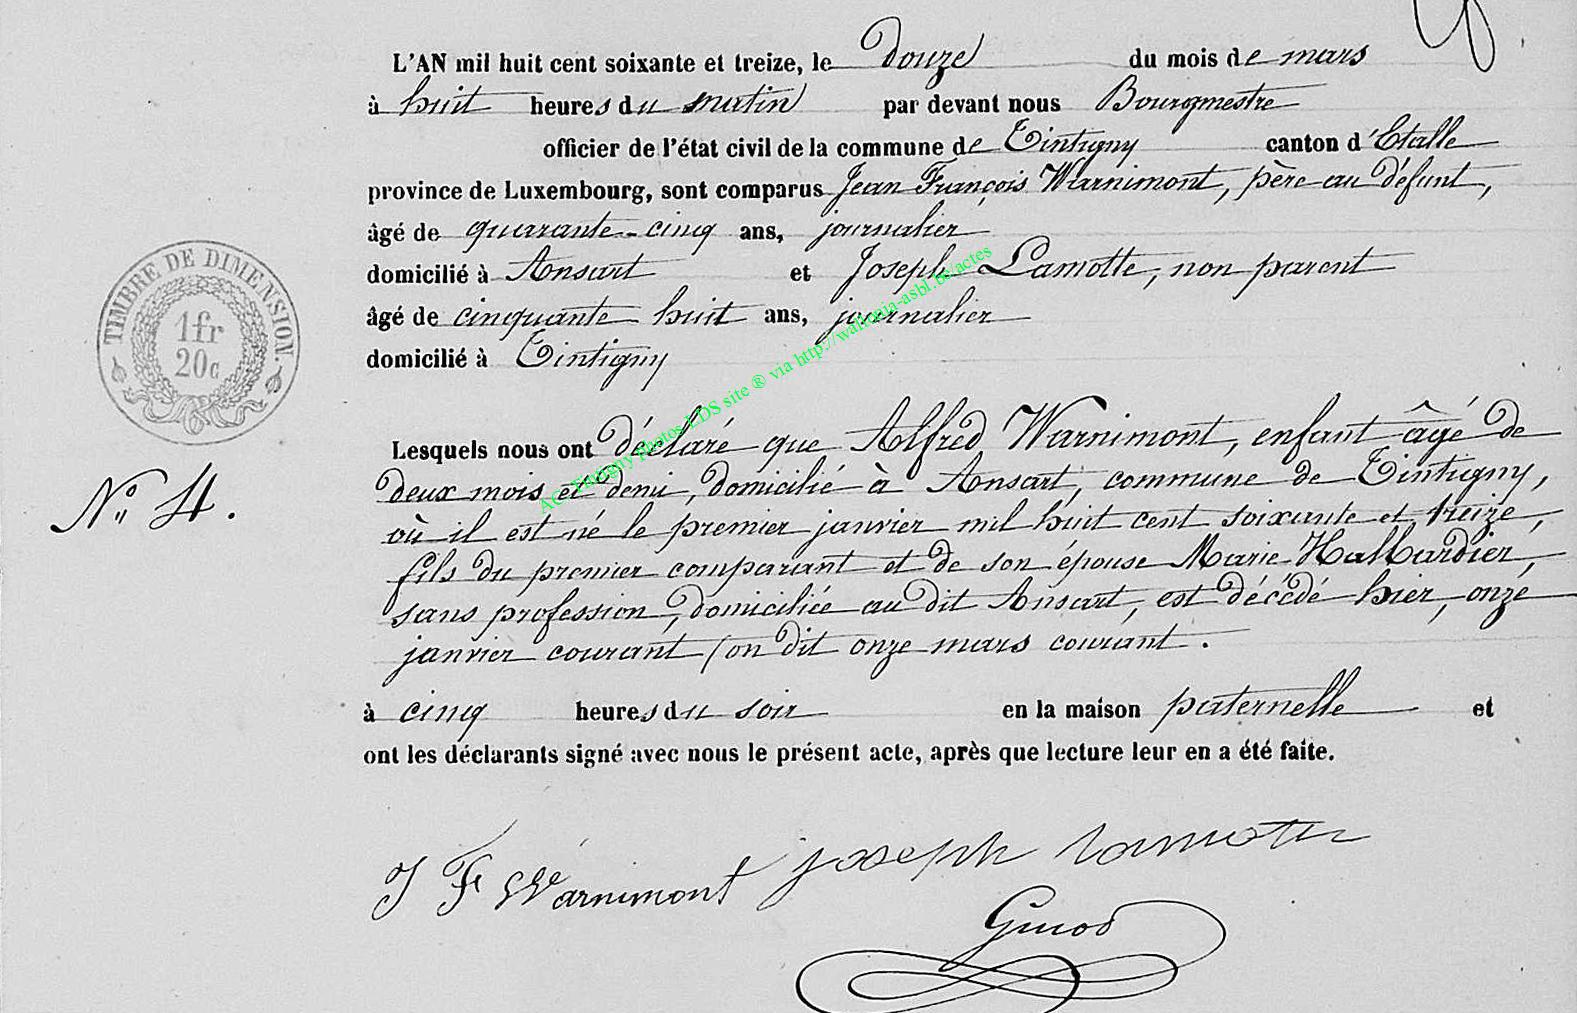 L'AN mil huit cent soixante et treize, le douze du mois de mars
à huit heures du matin par devant nous Bourgmestre
officier de l'état civil de la commune de Tintigny canton d'Etalle
province de Luxembourg, sont comparus Jean François Warnimont, père au défunt,
âgé de quarante-cinq ans, journalier
domicilié à Ansart et Joseph Lamotte, non parent
âgé de cinquante huit ans, journalier
domicilié à Tintigny
TIMBRE DE DIMENSION.
1fr
20c
AC-Tintigny photos LDS site ® via http://wallonia-asbl.be/actes
Lesquels nous ont déclaré que Alfred Warnimont, enfant âgé de
deux mois et demi, domicilié à Ansart, commune de Tintigny,
N° 4.
où il est né le premier janvier mil huit cent soixante et treize,
fils du premier comparant et de son épouse Marie Hallbardier,
sans profession, domiciliée au dit Ansart, est décédé hier, onze
janvier courant (on dit onze mars courant.
à cinq heures du soir en la maison paternelle et
ont les déclarants signé avec nous le présent acte, après que lecture leur en a été faite.
J F Warnimont joseph Lamotte